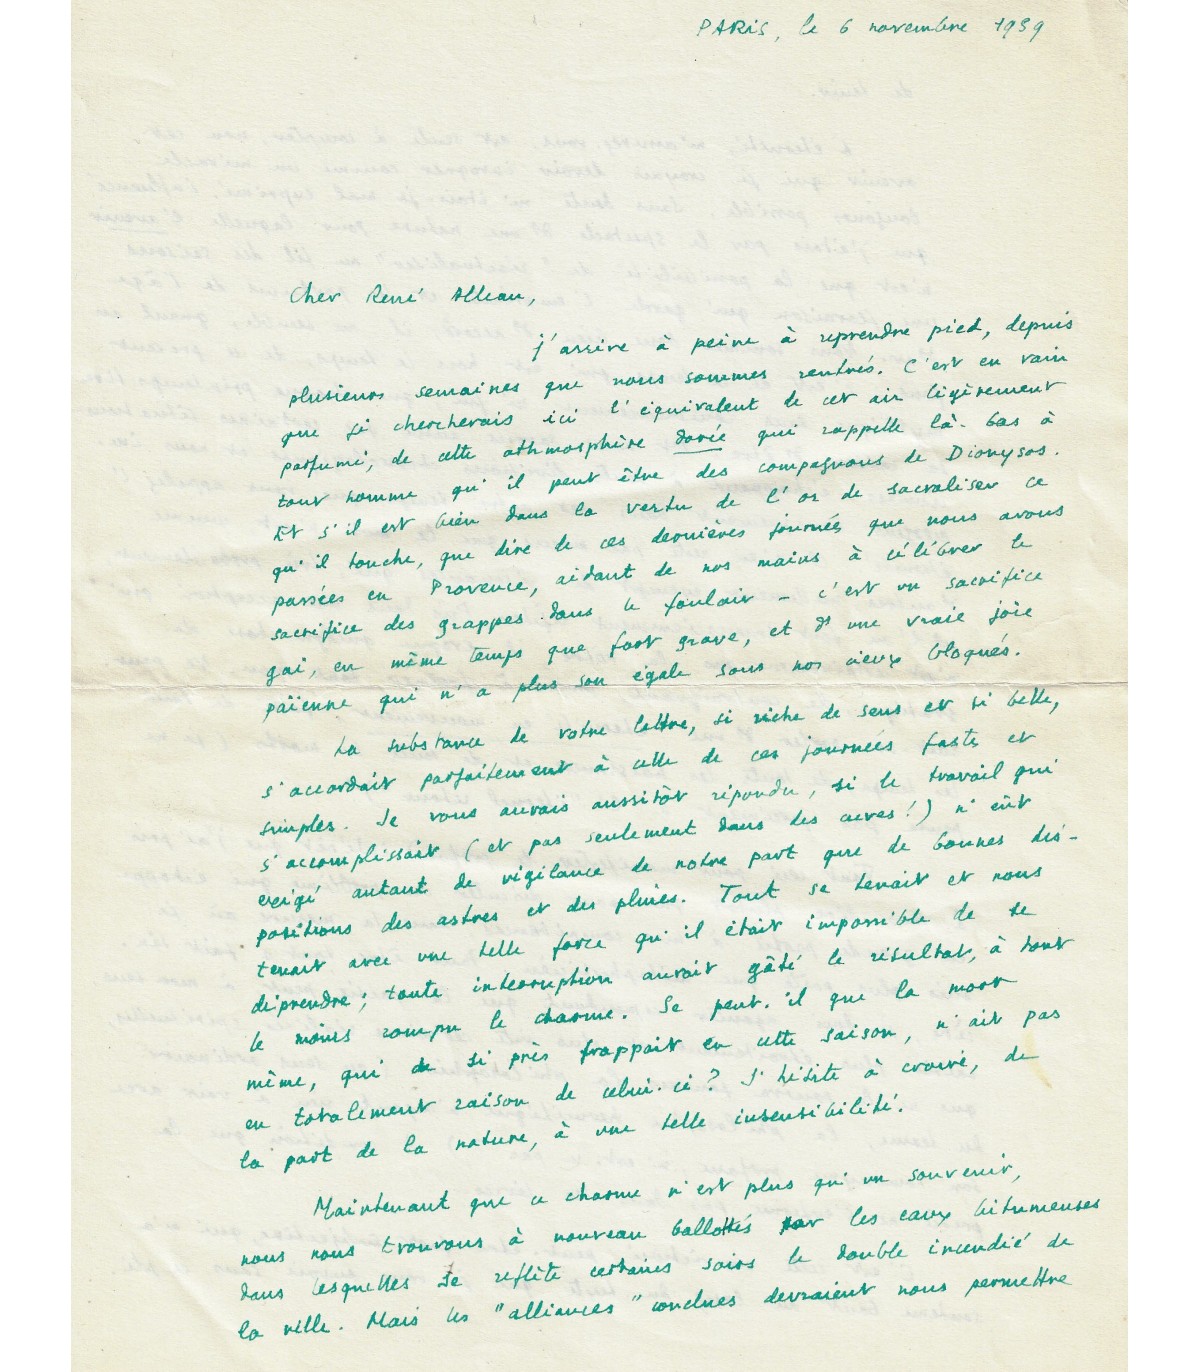 PARIS, le 6 novembre 1959
Cher René Alleau,
J'arrive à peine à reprendre pied, depuis
plusieurs semaines que nous sommes rentrés. C'est en vain
que je chercherais ici l'équivalent de cet air légèrement
parfumé, de cette athmosphère dorée qui rappelle là-bas à
tout homme qu'il peut être des compagnons de Dionysos.
Et s'il est bien dans la vertu de l'or de sacraliser ce
qu'il touche, que dire de ces dernières journées que nous avons
passées en Provence, aidant de nos mains à célébrer le
sacrifice des grappes dans le fouloir – c'est un sacrifice
gai, en même temps que fort grave, et d'une vraie joie
païenne qui n'a plus son égale sous nos cieux bloqués.
La substance de votre lettre, si riche de sens et si belle,
s'accordait parfaitement à celle de ces journées fastes et
simples. Je vous aurais aussitôt répondu, si le travail qui
s'accomplissait (et pas seulement dans des cuves!) n'eût
exigé autant de vigilance de notre part que de bonnes dis-
positions des astres et des pluies. Tout se tenait et nous
tenait avec une telle force qu'il était impossible de se
déprendre; toute interruption aurait gâté le résultat, à tout
le moins rompu le charme. Se peut-il que la mort
même, qui si près frappait en cette saison, n'ait pas
eu totalement raison de celui-ci? J'hésite à croire, de
la part de la nature, à une telle insensibilité.
Maintenant que ce charme n'est plus qu'un souvenir,
nous nous trouvons à nouveau ballottés par les eaux bitumeuses
dans lesquelles se reflète certains soirs le double incendié de
la ville. Mais les "alliances" conclues devraient nous permettre